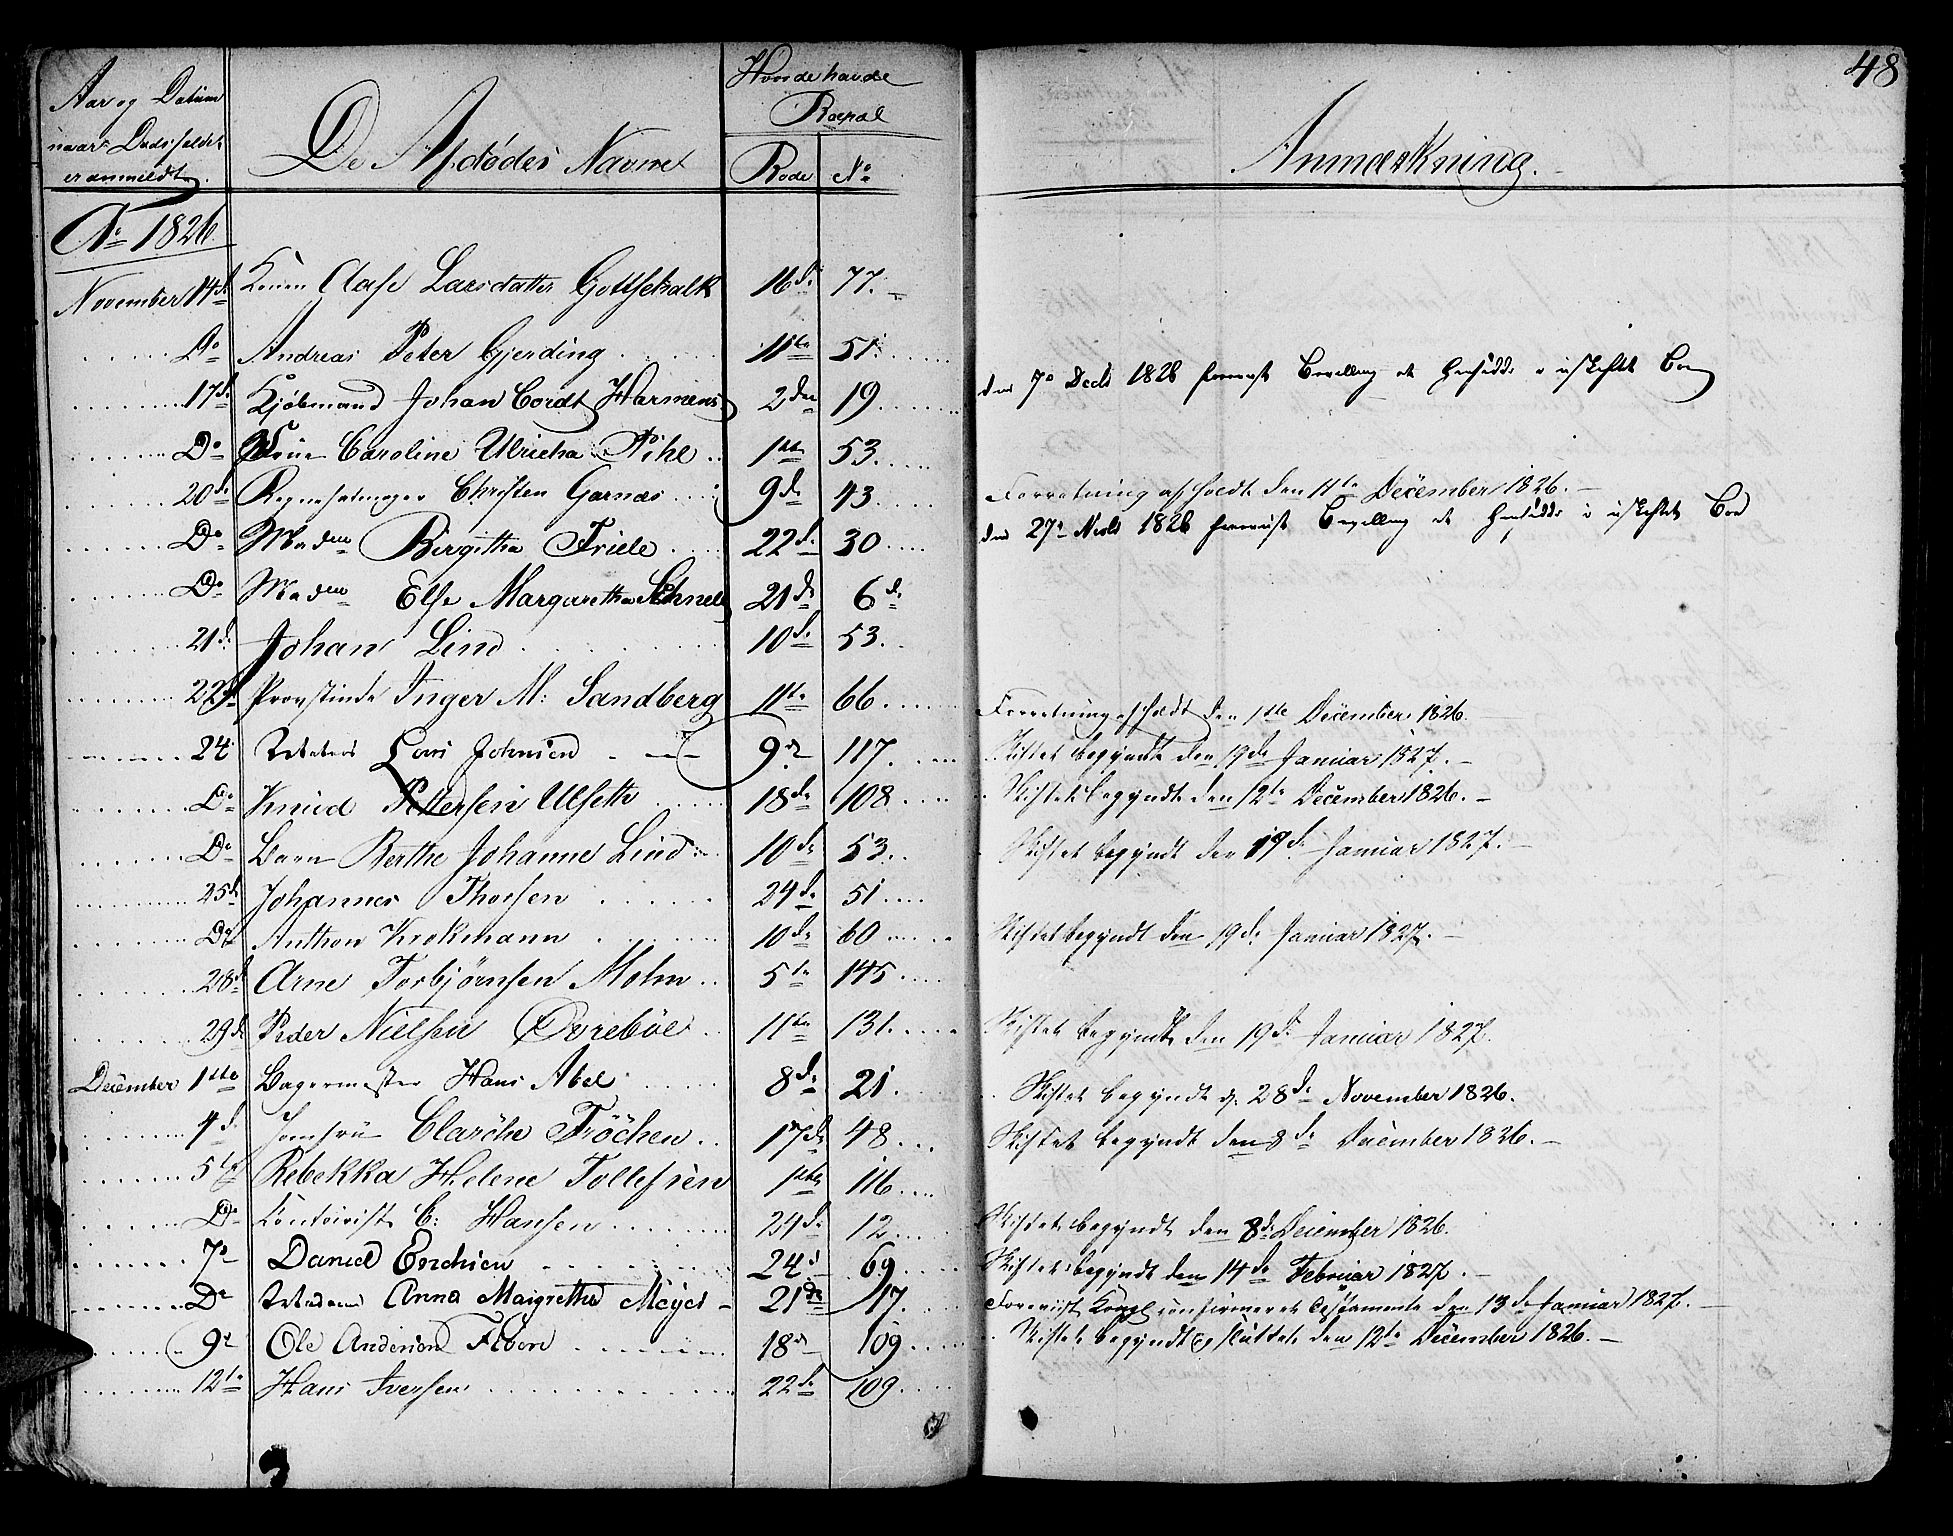 48
Aar og Datum
naar Dødsfaldet
er anmeldt.
De Afdødes Navne
Hvor de havde
Boepæl
Rode No
Anmærkning.
Ao 1826
November 14de Konen Aase Larsdatter Gottschalk 16de 77.
Do Andreas Peter Gjerding 11te 51.
17de Kjøbmand Johan Cordt Harmens 2den 19. den 7de Decbr 1826 foreviist Bevilling at hensidde i uskiftet Boe
Do Kone Caroline Ulricha Pihl 1ste 53.
20de Regnesmeger Christen Garnæs 9de 43. Forretning afholdt den 11te December 1826.
Do Madme Birgitha Friele 22de 30 den 27de Novbr 1826 foreviist Bevilling at hensidde i uskiftet Boe
Do Madme Else Margaretha Schnell 21de 6de
21de Johan Lind 10de 53.
22de Provstinde Inger M: Sandberg 11te 66. Forretning afholdt den 1ste December 1826.
24 Lars Johnsen 9de 117. Skiftet begyndt den 19de Januar 1827.
Do Knud Pettersen Ulseth 18de 108 Skiftet begyndt den 12te December 1826.
Do Barn Berthe Johanne Lind 10de 53. Skiftet begyndt den 19de Januar 1827.
25de Johannes Thorsen 24de 51
Do Anthon Krokmann 10de 60 Skiftet begyndt den 19de Januar 1827.
28de Arne Torbjørnsen Molm 5te 145
29de Peder Nielsen Øvrebøe 11te 131. Skiftet begyndt den 19de Januar 1827.
December 1ste Bagermester Hans Abel 8de 21. Skiftet begyndt d. 28de November 1826.
4de Jomfrue Clarche Fröchen 17de 48 Skiftet begyndt den 8de December 1826.
5te Rebekka Helene Tollefsen 1ste 116
Do Contoirist C: Hansen 24de 12 Skiftet begyndt den 8de December 1826.
7de Daniel Erichsen 24de 69 Skiftet begyndt den 14de Februar 1827.
Do Madame Anna Maigretha Meyer 21de 47. Foreviist Kongl confirmeret Testamente den 13de Januar 1827.
9de Ole Andersen 18de 109 Skiftet begyndt og sluttet den 12te December 1826.
12te Hans Iversen 22de 109